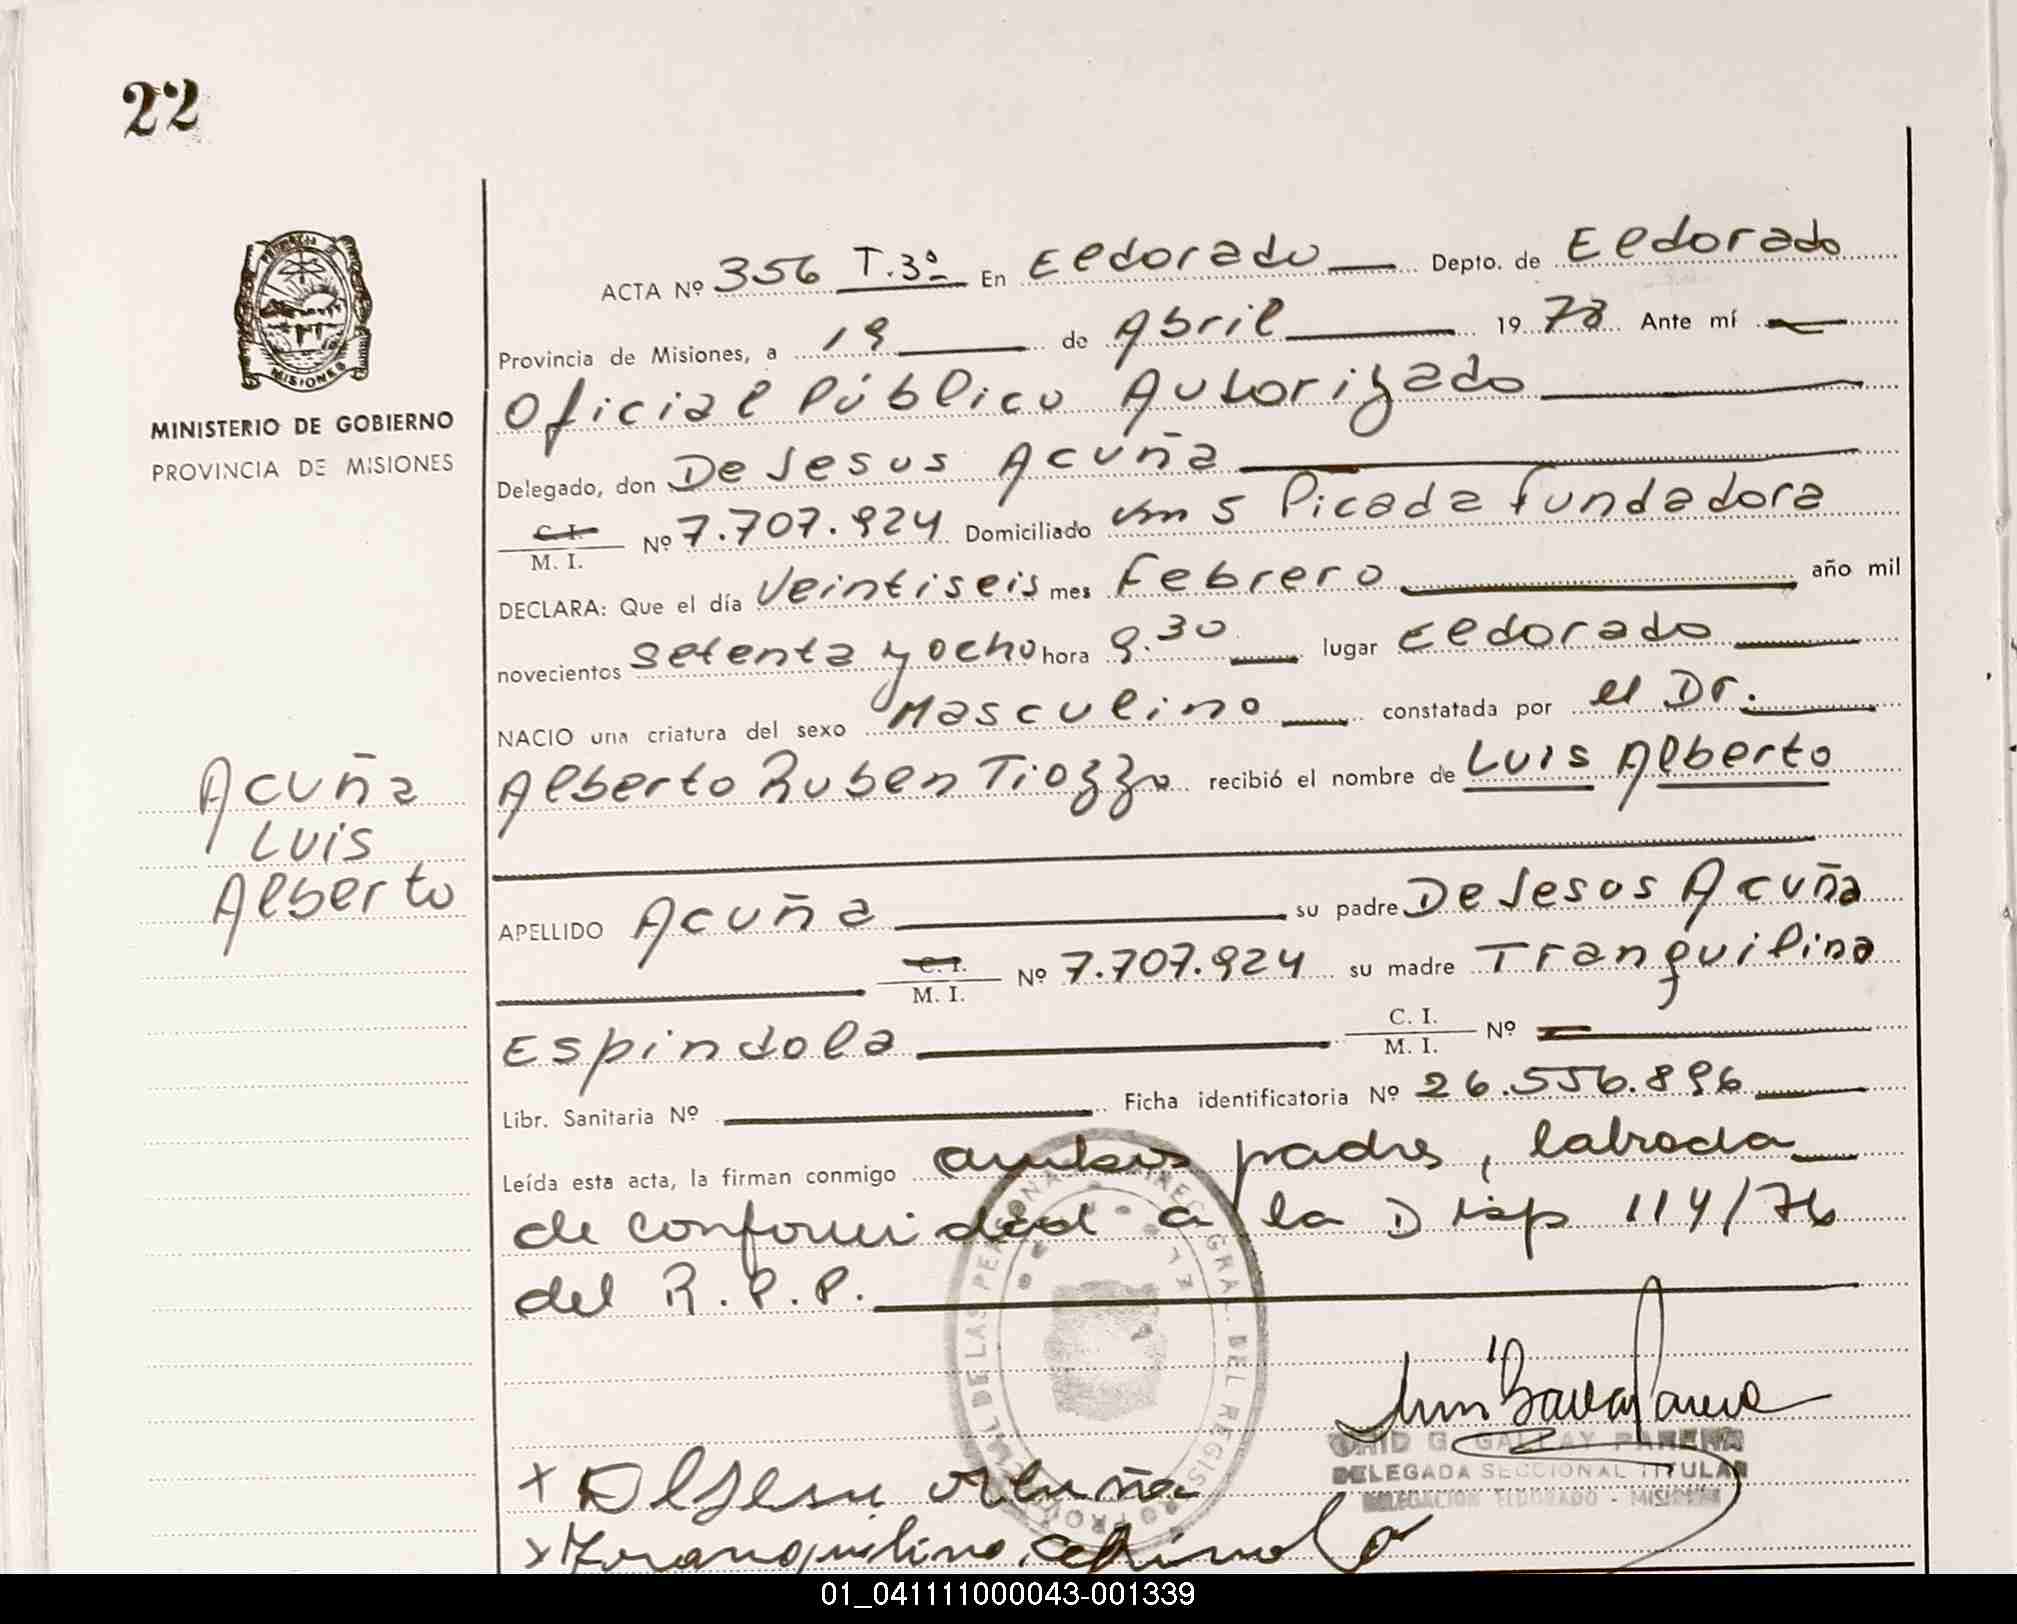 22
ACTA Nº 356 T.3º En Eldorado Depto. de Eldorado
Provincia de Misiones, a 19 de Abril 1978 Ante mí
Oficial Público Autorizado
Delegado, don De Jesus Acuña
C. I. / M. I. Nº 7.707.924 Domiciliado km 5 Picada fundadora
DECLARA: Que el día Veintiseis mes Febrero año mil
novecientos setenta y ocho hora 9.30 lugar Eldorado
NACIO una criatura del sexo Masculino constatada por el Dr.
Alberto Ruben Tiozzo recibió el nombre de Luis Alberto
APELLIDO Acuña su padre De Jesus Acuña
C. I. / M. I. Nº 7.707.924 su madre Tranquilina
Espindola C. I. / M. I. Nº
Libr. Sanitaria Nº Ficha identificatoria Nº 26.556.896
Leída esta acta, la firman conmigo ambos padres, labrada
de conformidad a la Disp 114/76
del R.P.P.
MISIONES
MINISTERIO DE GOBIERNO
PROVINCIA DE MISIONES
Acuña
Luis
Alberto
G. GALLAY PARERA
DELEGADA SECCIONAL TITULAR
DELEGACION ELDORADO - MISIONES
x De Jesus Acuña
x Tranquilina Espindola
01_041111000043-001339